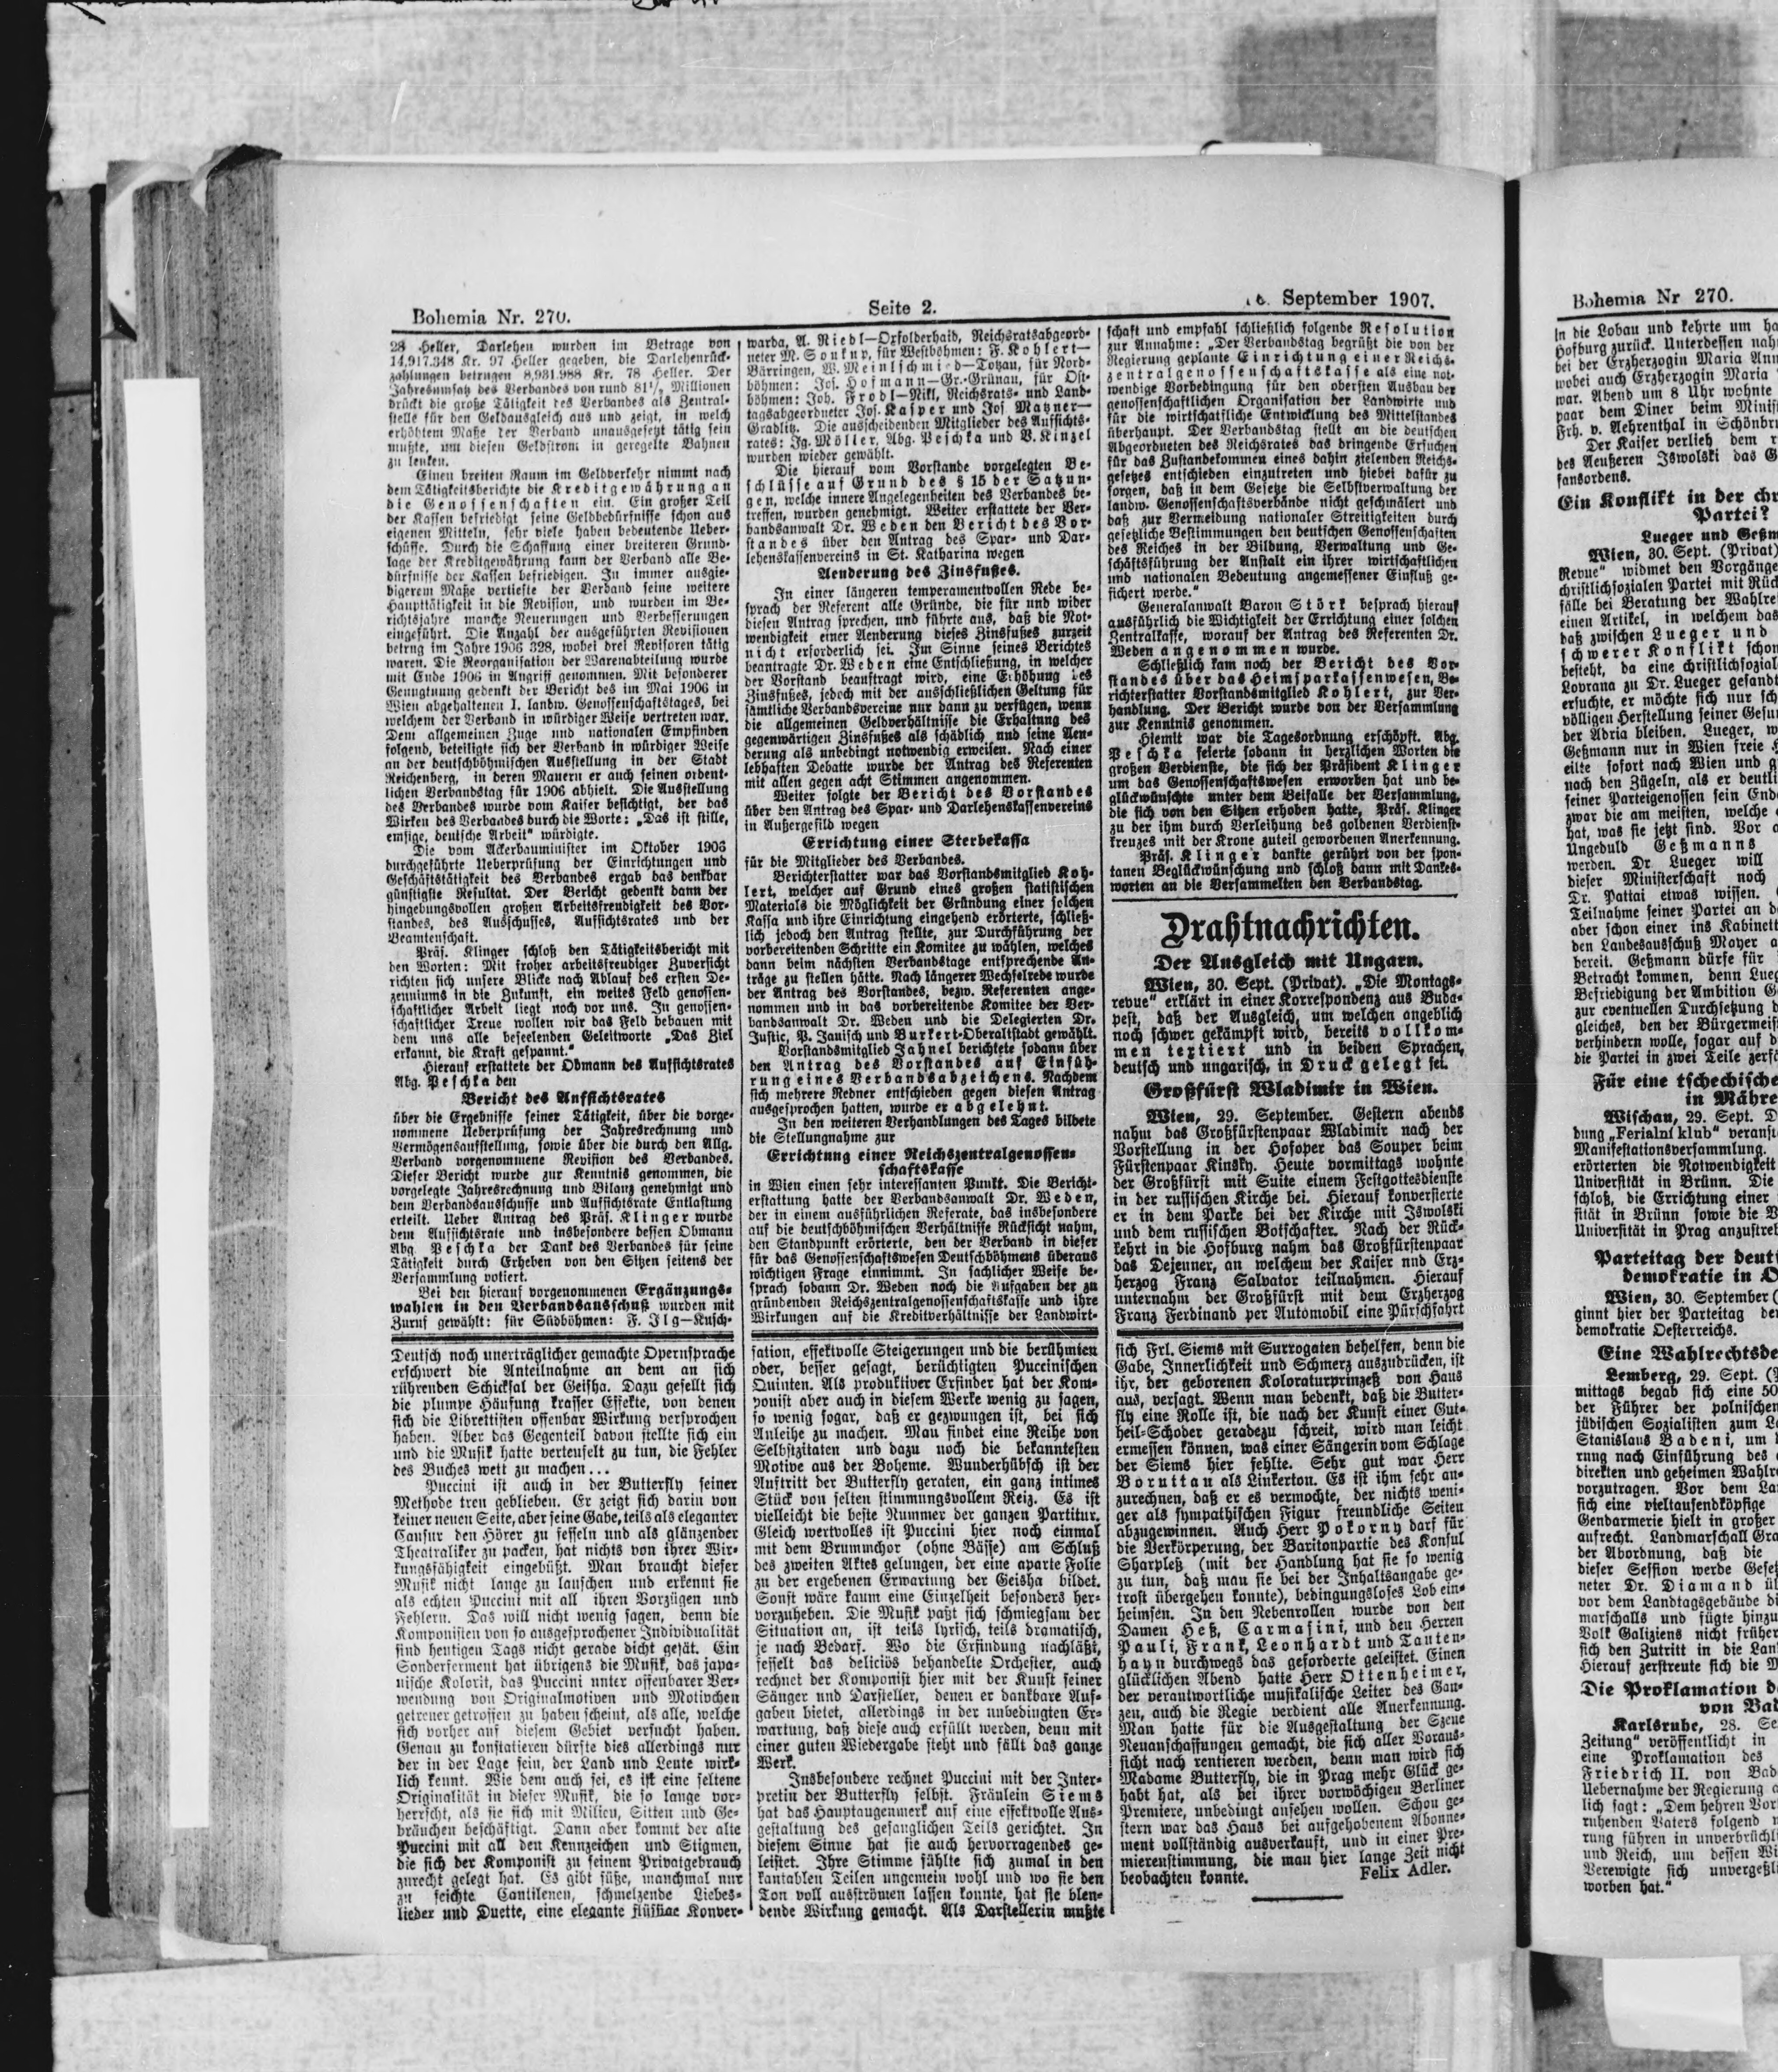 Bohemia Nr. 270.
Seite 2.
September 1907.
28 Heller, Darlehen wurden im Betrage von
14,917.348 Kr. 97 Heller gegeben, die Darlehenrück-
zahlungen betrugen 8,931.988 Kr. 78 Heller. Der
Jahresumsatz des Verbandes von rund 81½ Millionen
drückt die große Tätigkeit des Verbandes als Zentral-
stelle für den Geldausgleich aus und zeigt, in welch
erhöhtem Maße der Verband unausgesetzt tätig sein
mußte, um diesen Geldstrom in geregelte Bahnen
zu lenken.
Einen breiten Raum im Geldverkehr nimmt nach
dem Tätigkeitsberichte die Kreditgewährung an
die Genossenschaften ein. Ein großer Teil
der Kassen befriedigt seine Geldbedürfnisse schon aus
eigenen Mitteln, sehr viele haben bedeutende Ueber-
schüsse. Durch die Schaffung einer breiteren Grund-
lage der Kreditgewährung kann der Verband alle Be-
dürfnisse der Kassen befriedigen. In immer ausgie-
bigerem Maße vertiefte der Verband seine weitere
Haupttätigkeit in die Revision, und wurden im Be-
richtsjahre manche Neuerungen und Verbesserungen
eingeführt. Die Anzahl der ausgeführten Revisionen
betrug im Jahre 1906 328, wobei drei Revisoren tätig
waren. Die Reorganisation der Warenabteilung wurde
mit Ende 1906 in Angriff genommen. Mit besonderer
Genugtuung gedenkt der Bericht des im Mai 1906 in
Wien abgehaltenen I. landw. Genossenschaftstages, bei
welchem der Verband in würdiger Weise vertreten war.
Dem allgemeinen Zuge und nationalen Empfinden
folgend, beteiligte sich der Verband in würdiger Weise
an der deutschböhmischen Ausstellung in der Stadt
Reichenberg, in deren Mauern er auch seinen ordent-
lichen Verbandstag für 1906 abhielt. Die Ausstellung
des Verbandes wurde vom Kaiser besichtigt, der das
Wirken des Verbandes durch die Worte: „Das ist stille,
emsige, deutsche Arbeit“ würdigte.
Die vom Ackerbauminister im Oktober 1906
durchgeführte Ueberprüfung der Einrichtungen und
Geschäftstätigkeit des Verbandes ergab das denkbar
günstigste Resultat. Der Bericht gedenkt dann der
hingebungsvollen großen Arbeitsfreudigkeit des Vor-
standes, des Ausschusses, Aufsichtsrates und der
Beamtenschaft.
Präs. Klinger schloß den Tätigkeitsbericht mit
den Worten: Mit froher arbeitsfreudiger Zuversicht
richten sich unsere Blicke nach Ablauf des ersten De-
zenniums in die Zukunft, ein weites Feld genossen-
schaftlicher Arbeit liegt noch vor uns. In genossen-
schaftlicher Treue wollen wir das Feld bebauen mit
dem uns alle beseelenden Geleitworte „Das Ziel
erkannt, die Kraft gespannt.“
Hierauf erstattete der Obmann des Aufsichtsrates
Abg. Peschka den
Bericht des Aufsichtsrates
über die Ergebnisse seiner Tätigkeit, über die vorge-
nommene Ueberprüfung der Jahresrechnung und
Vermögensaufstellung, sowie über die durch den Allg.
Verband vorgenommene Revision des Verbandes.
Dieser Bericht wurde zur Kenntnis genommen, die
vorgelegte Jahresrechnung und Bilanz genehmigt und
dem Verbandsausschusse und Aufsichtsrate Entlastung
erteilt. Ueber Antrag des Präs. Klinger wurde
dem Aufsichtsrate und insbesondere dessen Obmann
Abg. Peschka der Dank des Verbandes für seine
Tätigkeit durch Erheben von den Sitzen seitens der
Versammlung votiert.
Bei den hierauf vorgenommenen Ergänzungs-
wahlen in den Verbandsausschuß wurden mit
Zuruf gewählt: für Südböhmen: F. Ilg—Kusch-
warda, A. Riedl—Oxfolderhaid, Reichsratsabgeord-
neter M. Soukup, für Westböhmen: F. Kohlert—
Bärringen, W. Meinlschmied—Totzau, für Nord-
böhmen: Jos. Hofmann—Gr.-Grünau, für Ost-
böhmen: Joh. Frodl—Nikl, Reichsrats- und Land-
tagsabgeordneter Jos. Kasper und Jos Matzner—
Gradlitz. Die ausscheidenden Mitglieder des Aufsichts-
rates: Ig. Möller, Abg. Peschka und V. Kinzel
wurden wieder gewählt.
Die hierauf vom Vorstande vorgelegten Be-
schlüsse auf Grund des § 15 der Satzun-
gen, welche innere Angelegenheiten des Verbandes be-
treffen, wurden genehmigt. Weiter erstattete der Ver-
bandsanwalt Dr. Weden den Bericht des Vor-
standes über den Antrag des Spar- und Dar-
lehenskassenvereins in St. Katharina wegen
Aenderung des Zinsfußes.
In einer längeren temperamentvollen Rede be-
sprach der Referent alle Gründe, die für und wider
diesen Antrag sprechen, und führte aus, daß die Not-
wendigkeit einer Aenderung dieses Zinsfußes zurzeit
nicht erforderlich sei. Im Sinne seines Berichtes
beantragte Dr. Weden eine Entschließung, in welcher
der Vorstand beauftragt wird, eine Erhöhung des
Zinsfußes, jedoch mit der ausschließlichen Geltung für
sämtliche Verbandsvereine nur dann zu verfügen, wenn
die allgemeinen Geldverhältnisse die Erhaltung des
gegenwärtigen Zinsfußes als schädlich und seine Aen-
derung als unbedingt notwendig erweisen. Nach einer
lebhaften Debatte wurde der Antrag des Referenten
mit allen gegen acht Stimmen angenommen.
Weiter folgte der Bericht des Vorstandes
über den Antrag des Spar- und Darlehenskassenvereins
in Außergefild wegen
Errichtung einer Sterbekassa
für die Mitglieder des Verbandes.
Berichterstatter war das Vorstandsmitglied Koh-
lert, welcher auf Grund eines großen statistischen
Materials die Möglichkeit der Gründung einer solchen
Kassa und ihre Einrichtung eingehend erörterte, schließ-
lich jedoch den Antrag stellte, zur Durchführung der
vorbereitenden Schritte ein Komitee zu wählen, welches
dann beim nächsten Verbandstage entsprechende An-
träge zu stellen hätte. Nach längerer Wechselrede wurde
der Antrag des Vorstandes, bezw. Referenten ange-
nommen und in das vorbereitende Komitee der Ver-
bandsanwalt Dr. Weden und die Delegierten Dr.
Justic, P. Janisch und Burkert-Oberaltstadt gewählt.
Vorstandsmitglied Jahnel berichtete sodann über
den Antrag des Vorstandes auf Einfüh-
rung eines Verbandsabzeichens. Nachdem
sich mehrere Redner entschieden gegen diesen Antrag
ausgesprochen hatten, wurde er abgelehnt.
In den weiteren Verhandlungen des Tages bildete
die Stellungnahme zur
Errichtung einer Reichszentralgenossen-
schaftskasse
in Wien einen sehr interessanten Punkt. Die Bericht-
erstattung hatte der Verbandsanwalt Dr. Weden,
der in einem ausführlichen Referate, das insbesondere
auf die deutschböhmischen Verhältnisse Rücksicht nahm,
den Standpunkt erörterte, den der Verband in dieser
für das Genossenschaftswesen Deutschböhmens überaus
wichtigen Frage einnimmt. In sachlicher Weise be-
sprach sodann Dr. Weden noch die Aufgaben der zu
gründenden Reichszentralgenossenschaftskasse und ihre
Wirkungen auf die Kreditverhältnisse der Landwirt-
schaft und empfahl schließlich folgende Resolution
zur Annahme: „Der Verbandstag begrüßt die von der
Regierung geplante Einrichtung einer Reichs-
zentralgenossenschaftskasse als eine not-
wendige Vorbedingung für den obersten Ausbau der
genossenschaftlichen Organisation der Landwirte und
für die wirtschaftliche Entwicklung des Mittelstandes
überhaupt. Der Verbandstag stellt an die deutschen
Abgeordneten des Reichsrates das dringende Ersuchen
für das Zustandekommen eines dahin zielenden Reichs-
gesetzes entschieden einzutreten und hiebei dafür zu
sorgen, daß in dem Gesetze die Selbstverwaltung der
landw. Genossenschaftsverbände nicht geschmälert und
daß zur Vermeidung nationaler Streitigkeiten durch
gesetzliche Bestimmungen den deutschen Genossenschaften
des Reiches in der Bildung, Verwaltung und Ge-
schäftsführung der Anstalt ein ihrer wirtschaftlichen
und nationalen Bedeutung angemessener Einfluß ge-
sichert werde.“
Generalanwalt Baron Störk besprach hierauf
ausführlich die Wichtigkeit der Errichtung einer solchen
Zentralkasse, worauf der Antrag des Referenten Dr.
Weden angenommen wurde.
Schließlich kam noch der Bericht des Vor-
standes über das Heimsparkassenwesen, Be-
richterstatter Vorstandsmitglied Kohlert, zur Ver-
handlung. Der Bericht wurde von der Versammlung
zur Kenntnis genommen.
Hiemit war die Tagesordnung erschöpft. Abg.
Peschka feierte sodann in herzlichen Worten die
großen Verdienste, die sich der Präsident Klinger
um das Genossenschaftswesen erworben hat und be-
glückwünschte unter dem Beifalle der Versammlung,
die sich von den Sitzen erhoben hatte, Präs. Klinger
zu der ihm durch Verleihung des goldenen Verdienst-
kreuzes mit der Krone zuteil gewordenen Anerkennung.
Präs. Klinger dankte gerührt von der spon-
tanen Beglückwünschung und schloß dann mit Dankes-
worten an die Versammelten den Verbandstag.
Drahtnachrichten.
Der Ausgleich mit Ungarn.
Wien, 30. Sept. (Privat). „Die Montags-
revue“ erklärt in einer Korrespondenz aus Buda-
pest, daß der Ausgleich, um welchen angeblich
noch schwer gekämpft wird, bereits vollkom-
men textiert und in beiden Sprachen,
deutsch und ungarisch, in Druck gelegt sei.
Großfürst Wladimir in Wien.
Wien, 29. September. Gestern abends
nahm das Großfürstenpaar Wladimir nach der
Vorstellung in der Hofoper das Souper beim
Fürstenpaar Kinsky. Heute vormittags wohnte
der Großfürst mit Suite einem Festgottesdienste
in der russischen Kirche bei. Hierauf konversierte
er in dem Parke bei der Kirche mit Iswolski
und dem russischen Botschafter. Nach der Rück-
kehrt in die Hofburg nahm das Großfürstenpaar
das Dejeuner, an welchem der Kaiser nnd Erz-
herzog Franz Salvator teilnahmen. Hierauf
unternahm der Großfürst mit dem Erzherzog
Franz Ferdinand per Automobil eine Pürschfahrt
Deutsch noch unerträglicher gemachte Opernsprache
erschwert die Anteilnahme an dem an sich
rührenden Schicksal der Geisha. Dazu gesellt sich
die plumpe Häufung krasser Effekte, von denen
sich die Librettisten offenbar Wirkung versprochen
haben. Aber das Gegenteil davon stellte sich ein
und die Musik hatte verteufelt zu tun, die Fehler
des Buches wett zu machen...
Puccini ist auch in der Butterfly seiner
Methode treu geblieben. Er zeigt sich darin von
keiner neuen Seite, aber seine Gabe, teils als eleganter
Causeur den Hörer zu fesseln und als glänzender
Theatraliker zu packen, hat nichts von ihrer Wir-
kungsfähigkeit eingebüßt. Man braucht dieser
Musik nicht lange zu lauschen und erkennt sie
als echten Puccini mit all ihren Vorzügen und
Fehlern. Das will nicht wenig sagen, denn die
Komponisten von so ausgesprochener Individualität
sind heutigen Tags nicht gerade dicht gesät. Ein
Sonderferment hat übrigens die Musik, das japa-
nische Kolorit, das Puccini unter offenbarer Ver-
wendung von Originalmotiven und Motivchen
getreuer getroffen zu haben scheint, als alle, welche
sich vorher auf diesem Gebiet versucht haben.
Genau zu konstatieren dürfte dies allerdings nur
der in der Lage sein, der Land und Leute wirk-
lich kennt. Wie dem auch sei, es ist eine seltene
Originalität in dieser Musik, die so lange vor-
herrscht, als sie sich mit Milieu, Sitten und Ge-
bräuchen beschäftigt. Dann aber kommt der alte
Puccini mit all den Kennzeichen und Stigmen,
die sich der Komponist zu seinem Privatgebrauch
zurecht gelegt hat. Es gibt süße, manchmal nur
zu seichte Cantilenen, schmelzende Liebes-
lieder und Duette, eine elegante flüssige Konver-
sation, effektvolle Steigerungen und die berühmten
oder, besser gesagt, berüchtigten Puccinischen
Quinten. Als produktiver Erfinder hat der Kom-
ponist aber auch in diesem Werke wenig zu sagen,
so wenig sogar, daß er gezwungen ist, bei sich
Anleihe zu machen. Man findet eine Reihe von
Selbstzitaten und dazu noch die bekanntesten
Motive aus der Boheme. Wunderhübsch ist der
Auftritt der Butterfly geraten, ein ganz intimes
Stück von selten stimmungsvollem Reiz. Es ist
vielleicht die beste Nummer der ganzen Partitur.
Gleich wertvolles ist Puccini hier noch einmal
mit dem Brummchor (ohne Bässe) am Schluß
des zweiten Aktes gelungen, der eine aparte Folie
zu der ergebenen Erwartung der Geisha bildet.
Sonst wäre kaum eine Einzelheit besonders her-
vorzuheben. Die Musik paßt sich schmiegsam der
Situation an, ist teils lyrisch, teils dramatisch,
je nach Bedarf. Wo die Erfindung nachläßt,
fesselt das deliciös behandelte Orchester, auch
rechnet der Komponist hier mit der Kunst seiner
Sänger und Darsteller, denen er dankbare Auf-
gaben bietet, allerdings in der unbedingten Er-
wartung, daß diese auch erfüllt werden, denn mit
einer guten Wiedergabe steht und fällt das ganze
Werk.
Insbesondere rechnet Puccini mit der Inter-
pretin der Butterfly selbst. Fräulein Siems
hat das Hauptaugenmerk auf eine effektvolle Aus-
gestaltung des gesanglichen Teils gerichtet. In
diesem Sinne hat sie auch hervorragendes ge-
leistet. Ihre Stimme fühlte sich zumal in den
kantablen Teilen ungemein wohl und wo sie den
Ton voll ausströmen lassen konnte, hat sie blen-
dende Wirkung gemacht. Als Darstellerin mußte
sich Frl. Siems mit Surrogaten behelfen, denn die
Gabe, Innerlichkeit und Schmerz auszudrücken, ist
ihr, der geborenen Koloraturprinzeß von Haus
aus, versagt. Wenn man bedenkt, daß die Butter-
fly eine Rolle ist, die nach der Kunst einer Gut-
heil-Schoder geradezu schreit, wird man leicht
ermessen können, was einer Sängerin vom Schlage
der Siems hier fehlte. Sehr gut war Herr
Boruttau als Linkerton. Es ist ihm sehr an-
zurechnen, daß er es vermochte, der nichts weni-
ger als sympathischen Figur freundliche Seiten
abzugewinnen. Auch Herr Pokorny darf für
die Verkörperung, der Baritonpartie des Konsul
Sharpleß (mit der Handlung hat sie so wenig
zu tun, daß man sie bei der Inhaltsangabe ge-
trost übergehen konnte), bedingungsloses Lob ein-
heimsen. In den Nebenrollen wurde von den
Damen Heß, Carmasini, und den Herren
Pauli, Frank, Leonhardt und Tauten-
hayn durchwegs das geforderte geleistet. Einen
glücklichen Abend hatte Herr Ottenheimer,
der verantwortliche musikalische Leiter des Gan-
zen, auch die Regie verdient alle Anerkennung.
Man hatte für die Ausgestaltung der Szene
Neuanschaffungen gemacht, die sich aller Voraus-
sicht nach rentieren werden, denn man wird sich
Madame Butterfly, die in Prag mehr Glück ge-
habt hat, als bei ihrer vorwöchigen Berliner
Premiere, unbedingt ansehen wollen. Schon ge-
stern war das Haus bei aufgehobenem Abonne-
ment vollständig ausverkauft, und in einer Pre-
mierenstimmung, die man hier lange Zeit nicht
beobachten konnte.
Felix Adler.
Bohemia Nr 270.
in die Lobau und kehrte um
Hofburg zurück. Unterdessen
bei der Erzherzogin Maria
wobei auch Erzherzogin Maria
war. Abend um 8 Uhr wohnte
paar dem Diner beim
Frh. v. Aehrenthal in
Der Kaiser verlieh dem
des Aeußeren Iswolski das
fansordens.
Ein Konflikt in der
Partei?
Lueger und
Wien, 30. Sept. (Privat)
Revue“ widmet den
christlichsozialen Partei mit
fälle bei Beratung der
einen Artikel, in welchem
daß zwischen Lueger und
schwerer Konflikt schon
besteht, da eine
Lovrana zu Dr. Lueger gesandt
ersuchte, er möchte sich nur
völligen Herstellung seiner
der Adria bleiben. Lueger,
Geßmann nur in Wien freie
eilte sofort nach Wien und
nach den Zügeln, als er
seiner Parteigenossen sein
zwar die am meisten, welche
hat, was sie jetzt sind. Vor
Ungeduld Geßmanns
werden. Dr Lueger will
dieser Ministerschaft noch
Dr. Pattai etwas wissen.
Teilnahme seiner Partei an
aber schon einer ins Kabinett
den Landesausschuß Mayer
bereit. Geßmann dürfe für
Betracht kommen, denn
Befriedigung der Ambition
zur eventuellen Durchsetzung
gleiches, den der
verhindern wolle, sogar auf
die Partei in zwei Teile
Für eine tschechische
in
Wischau, 29. Sept.
dung „Ferialní klub“
Manifestationsversammlung.
erörterten die Notwendigkeit
Universität in Brünn. Die
schloß, die Errichtung einer
sität in Brünn sowie die
Universität in Prag
Parteitag der
demokratie in
Wien, 30. September
ginnt hier der Parteitag
demokratie Oesterreichs.
Eine
Lemberg, 29. Sept.
mittags begab sich eine
der Führer der polnischen
jüdischen Sozialisten zum
Stanislaus Badeni, um
rung nach Einführung des
direkten und geheimen
vorzutragen. Vor dem
sich eine vieltausendköpfige
Gendarmerie hielt in großer
aufrecht. Landmarschall
der Abordnung, daß die
dieser Session werde
neter Dr. Diamand
vor dem Landtagsgebäude
marschalls und fügte hinzu
Volk Galiziens nicht früher
sich den Zutritt in die
Hierauf zerstreute sich die
Die Proklamation
von
Karlsruhe, 28.
Zeitung“ veröffentlicht in
eine Proklamation des
Friedrich II. von
Uebernahme der Regierung
lich sagt: „Dem hehren
ruhenden Vaters folgend
rung führen in
und Reich, um dessen
Verewigte sich
worben hat.“